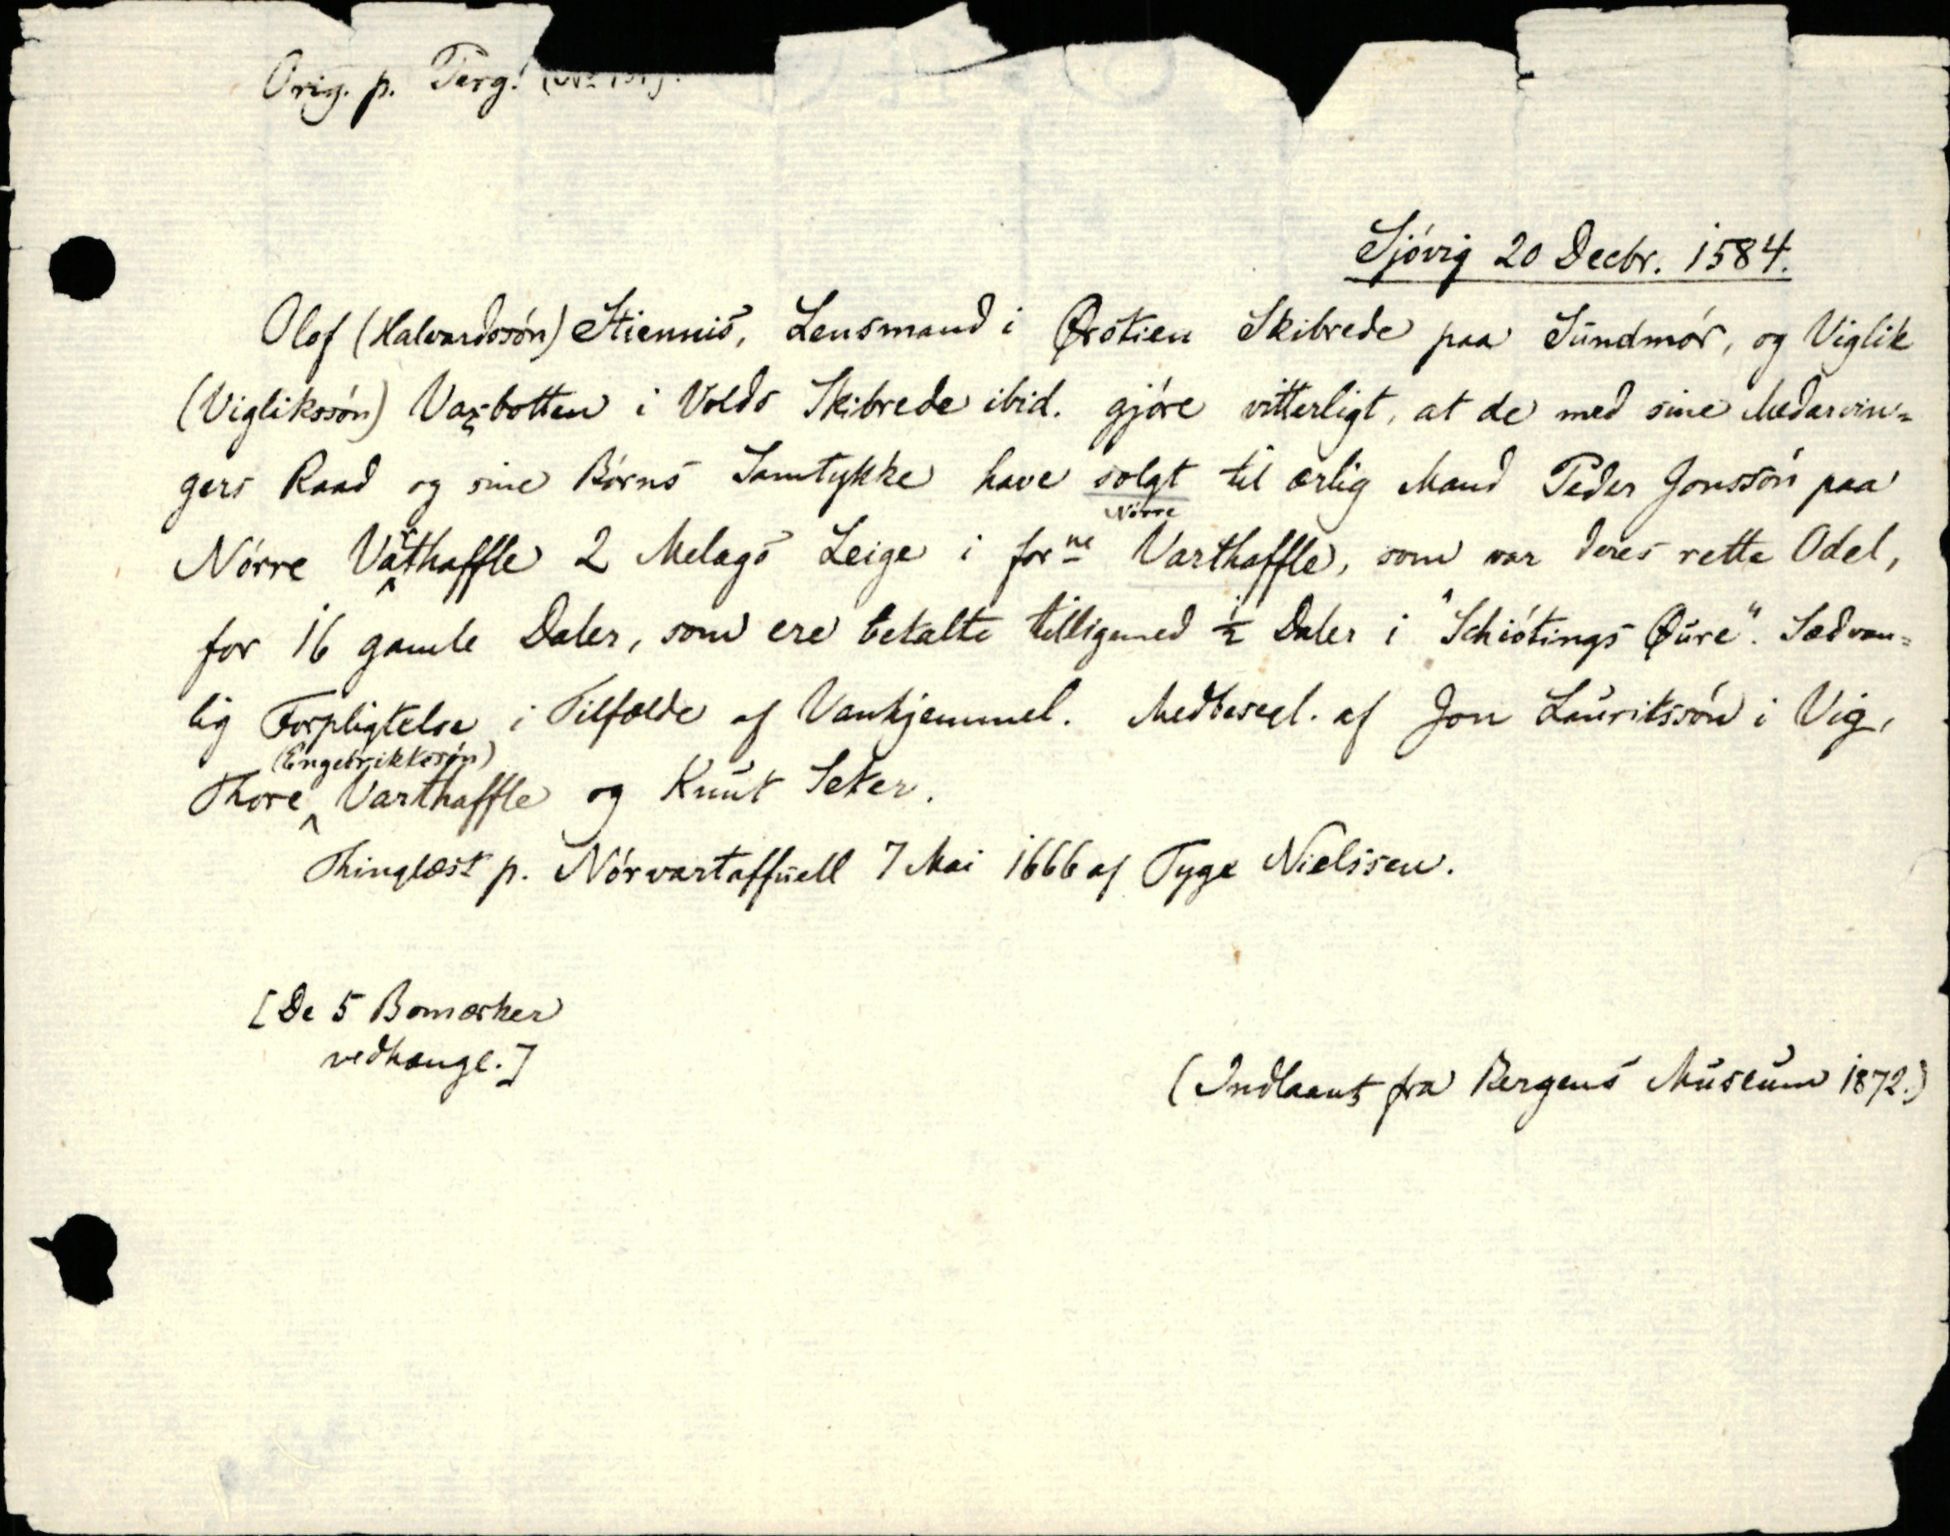 Orig. p. Perg.
Sjövig 20 Decbr. 1584.
Olof (Halvardssön) Stiennis, Lensmand i Ørstien Skibrede paa Sundmör, og Viglik
(Viglikssön) Vaxbotten i Volds Skibrede ibid. gjöre vitterligt, at de med sine Medarvin=
gers Raad og sine Börns Samtykke have solgt til ærlig Mand Peder Jonssön paa
Nörre Varthaffle 2 Melags Leige i forne Nörre Varthaffle, som var deres rette Odel,
for 16 gamle Daler, som ere betalte tilligemed ½ Daler i "Schiötings Øure". Sædvan=
lig Forpligtelse i Tilfælde af Vanhjemmel. Medbesegl. af Jon Laurikssön i Vig,
Thore (Engebrikkssön) Varthaffle og Knut Seter.
Thinglæst p. Nörvartaffuell 7 Mai 1666 af Tyge Nielssen.
[De 5 Bomærker
vedhænge.]
(Indlaant fra Bergens Museum 1872.)